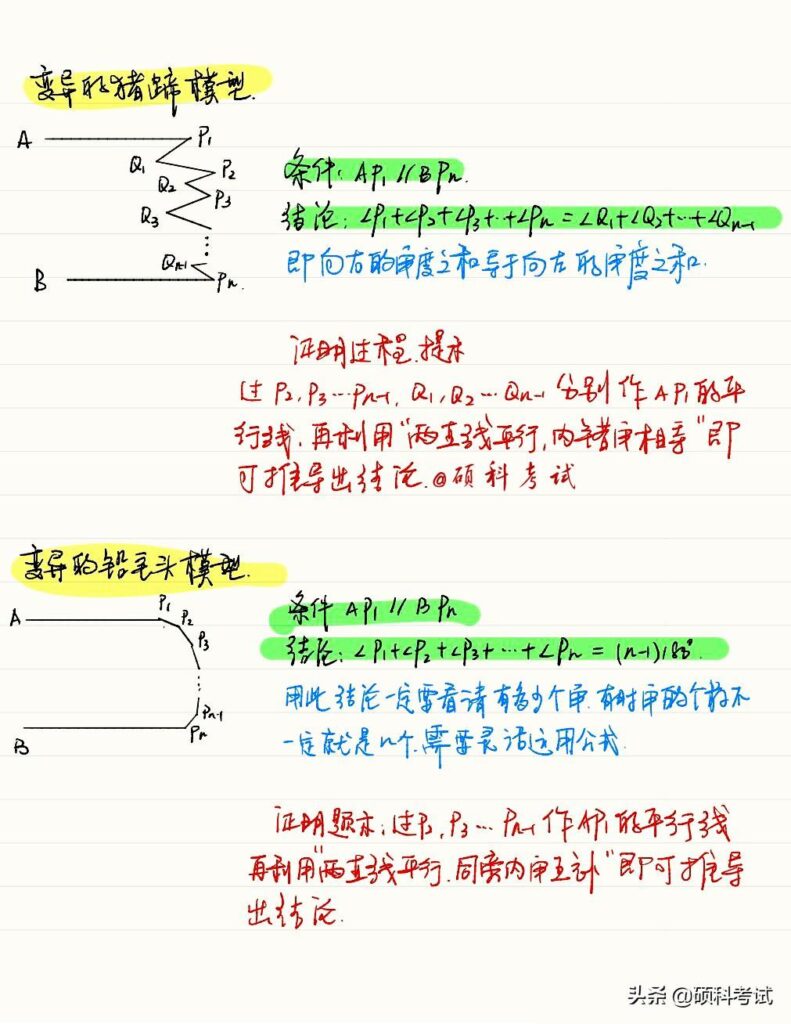 变异的猪蹄模型.
A
P1
Q1
P2
Q2
P3
Q3
Qn-1
B
Pn.
条件: AP1 // BPn.
结论: ∠P1+∠P2+∠P3+…+∠Pn = ∠Q1+∠Q2+…+∠Qn-1
即向右的角度之和等于向左的角度之和.
证明过程.提示
过 P2, P3…Pn-1, Q1, Q2…Qn-1 分别作 AP1 的平
行线, 再利用“两直线平行,内错角相等”即
可推导出结论.@硕科考试
变异的铅笔头模型.
A
P1
P2
P3
Pn-1
Pn
B
条件 AP1 // BPn
结论: ∠P1+∠P2+∠P3+…+∠Pn = (n-1)180°.
用此结论一定要看清有多少个角.有时角的个数不
一定就是n个.需要灵活运用公式.
证明提示: 过P2, P3…Pn-1作AP1的平行线
再利用“两直线平行.同旁内角互补”即可推导
出结论.
头条 @硕科考试